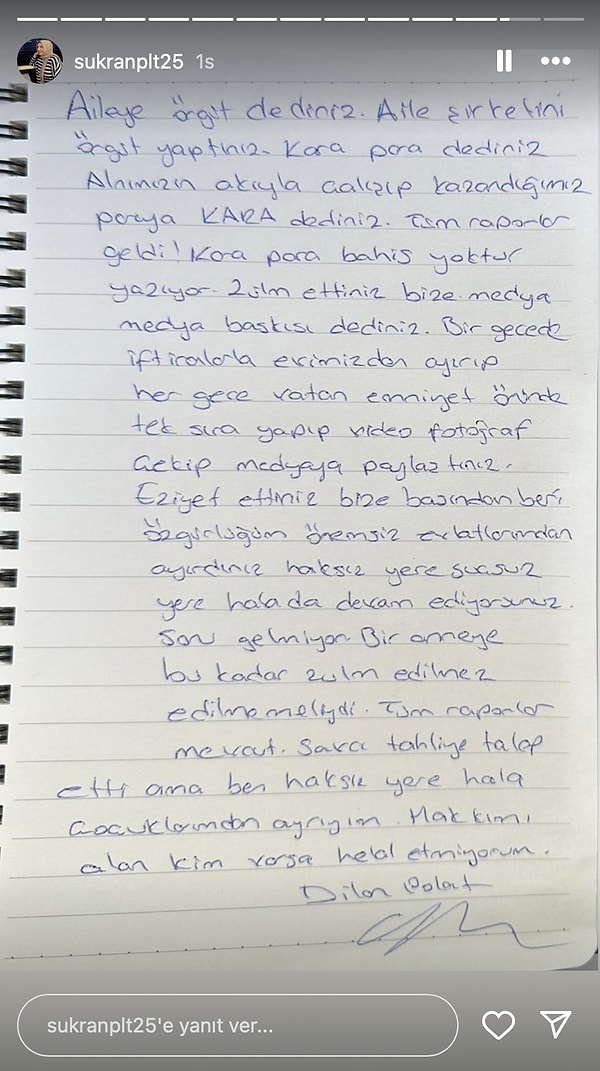 sukranplt25 1s
Aileye örgüt dediniz. Aile şirketini
örgüt yaptınız. Kara para dediniz
Alnımızın akıyla çalışıp kazandığımız
paraya KARA dediniz. Tüm raporlar
geldi! Kara para bahis yoktur
yazıyor. Zülm ettiniz bize. medya
medya baskısı dediniz. Bir gecede
iftiralarla evimizden ayırıp
her gece vatan emniyet önünde
tek sıra yapıp video fotoğraf
Çekip medyaya paylaştınız.
Eziyet ettiniz bize basından beri
Özgürlüğüm önemsiz evlatlarımdan
ayırdınız haksız yere suçsuz
yere hala da devam ediyorsunuz.
Sonu gelmiyor. Bir anneye
bu kadar zulm edilmez
edilmemeliydi. Tüm raporlar
mevcut. Savcı tahliye talep
etti ama ben haksız yere hala
Çocuklarımdan ayrıyım. Hakkımı
alan kim varsa helal etmiyorum.
Dilan Polat
sukranplt25'e yanıt ver...